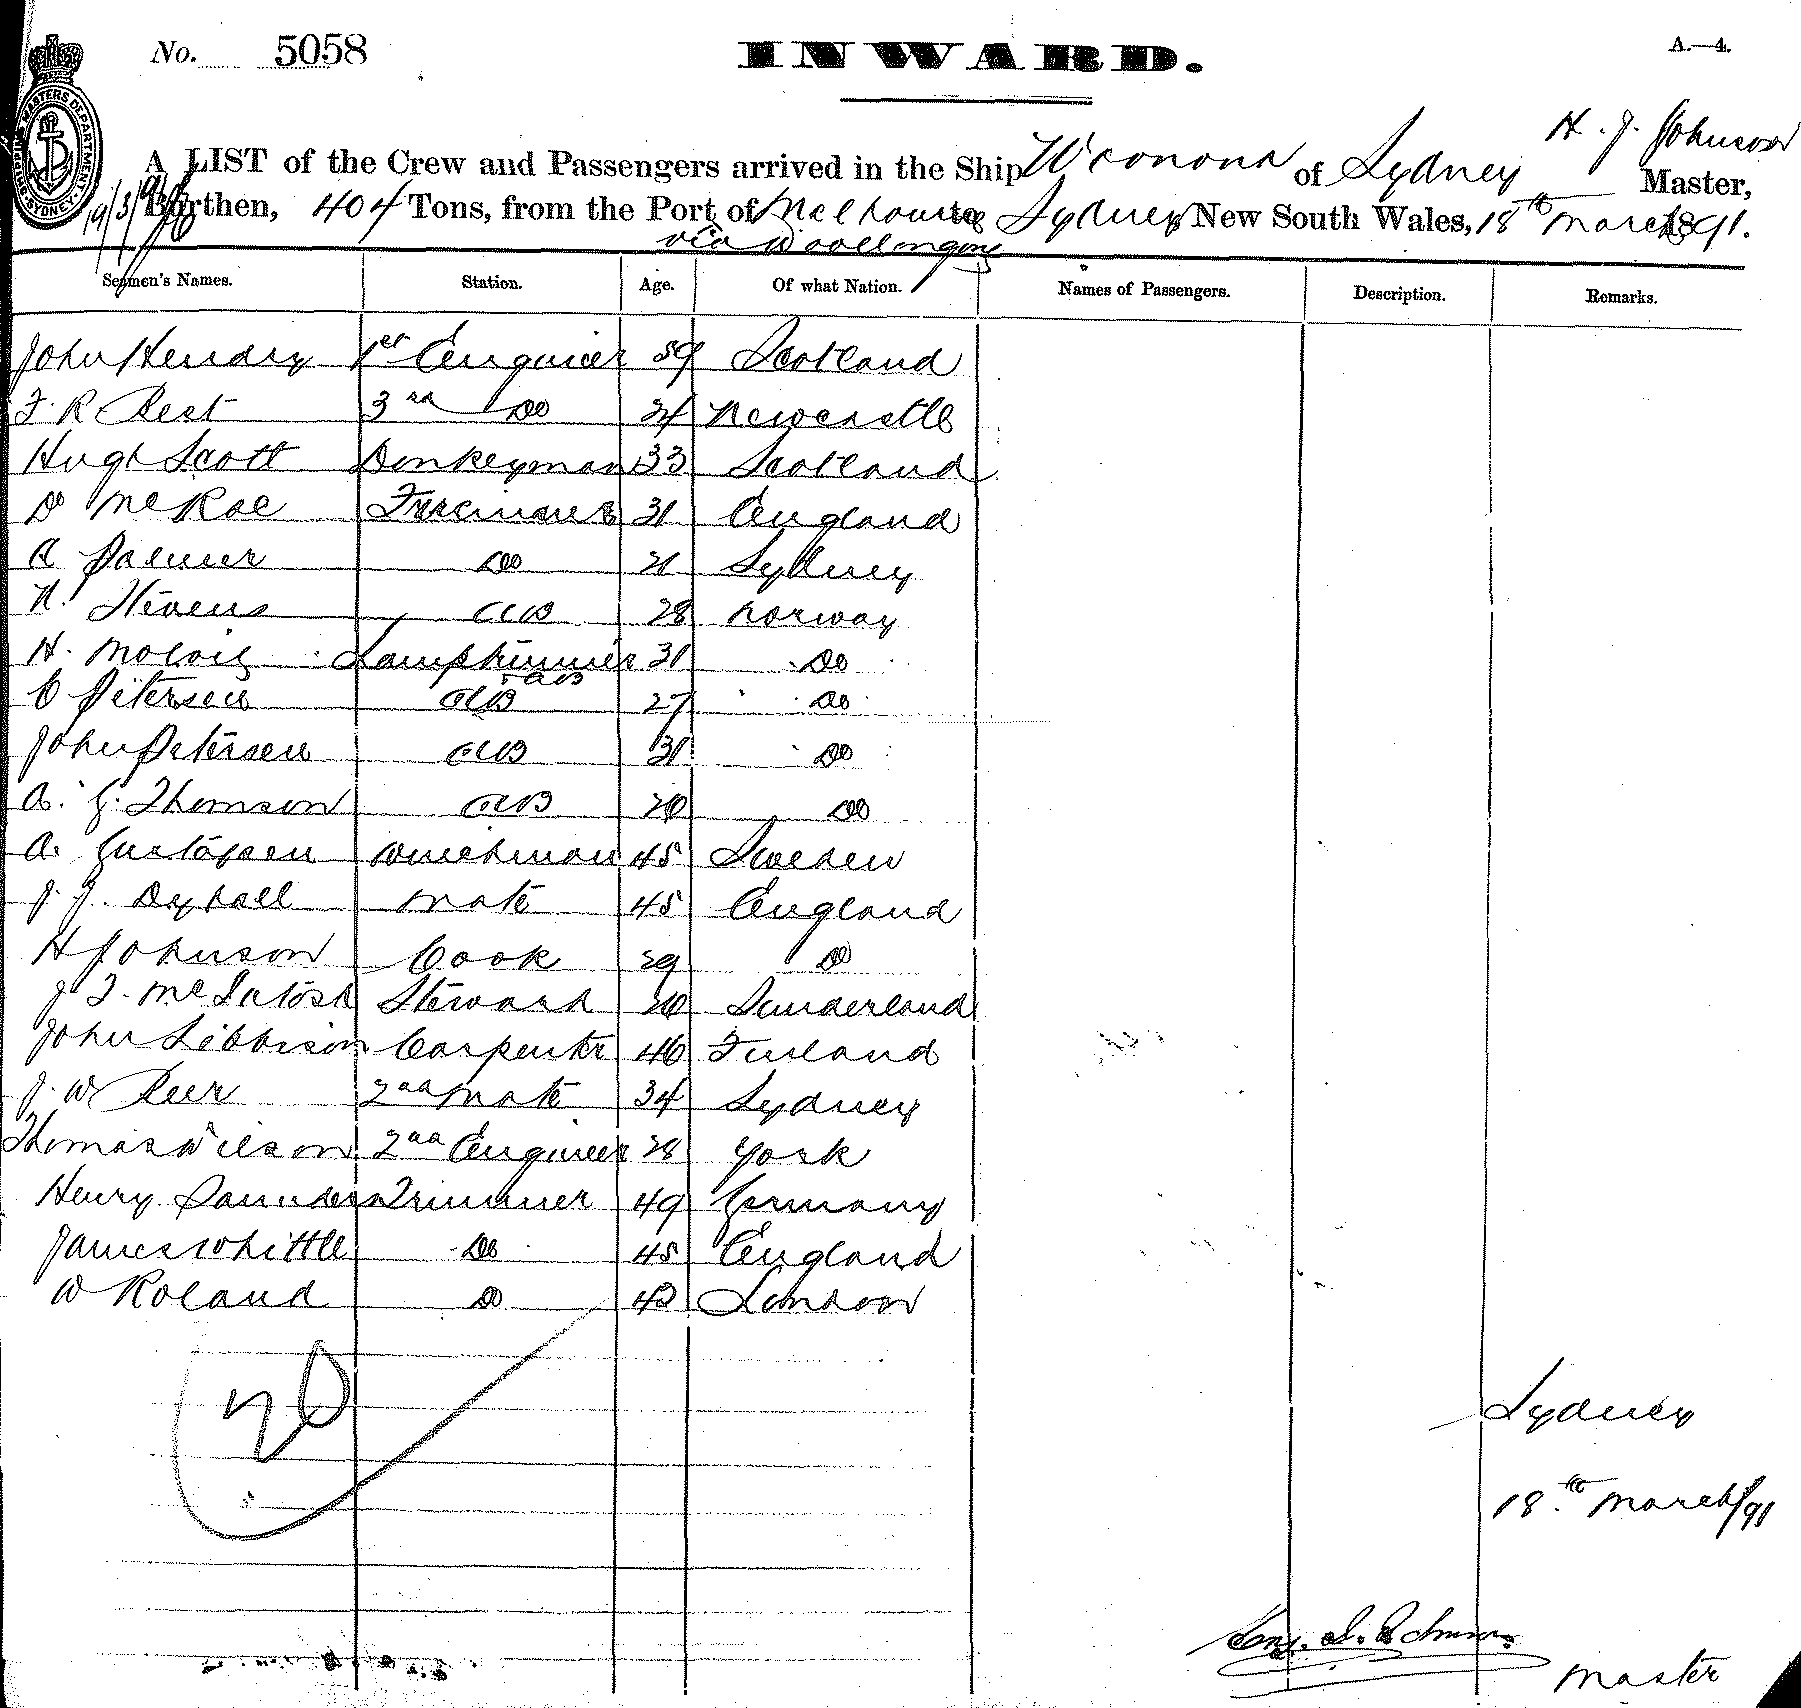 No. 5058
INWARD.
A.—4.
SHIPPING MASTERS DEPARTMENT SYDNEY
H. J. Johnson
A LIST of the Crew and Passengers arrived in the Ship Woonona of Sydney Master,
19/3/91
Burthen, 404 Tons, from the Port of Melbourne to Sydney New South Wales, 18th March 1891.
via Woollongong
Seamen's Names. Station. Age. Of what Nation. Names of Passengers. Description. Remarks.
John Hendry 1st Engineer 39 Scotland
F. R Rest 3rd Do 24 Newcastle
Hugh Scott Donkeyman 33 Scotland
D McRae Firemans 31 England
A Palmer Do 21 Sydney
N. Stevens AB 28 Norway
H. Lamptrimmer 31 Do
& AB
C Petersen AB 27 Do
John Petersen AB 31 Do
A. G. Thomson AB 20 Do
A. Gustafsen Winchman 45 Sweden
J. J. Dyball Mate 45 England
H Johnson Cook 29 D
J T. McIntosh Steward 20 Sunderland
John Sibbison Carpenter 46 Finland
J. W 2nd Mate 34 Sydney
Thomas Wilson 2nd Engineer 28 York
Henry Saunders Trimmer 49 Germany
James Whittle Do 45 England
W Roland Do 42 London
Sydney
18th March/91
Master